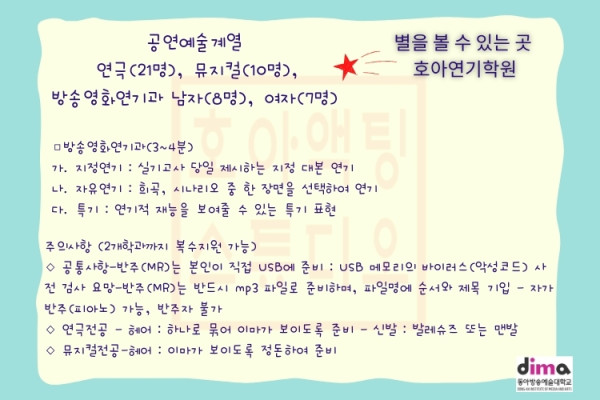 공연예술계열
연극(21명), 뮤지컬(10명),
방송영화연기과 남자(8명), 여자(7명)
별을 볼 수 있는 곳
호아연기학원
□방송영화연기과(3~4분)
가. 지정연기 : 실기고사 당일 제시하는 지정 대본 연기
나. 자유연기 : 희곡, 시나리오 중 한 장면을 선택하여 연기
다. 특기 : 연기적 재능을 보여줄 수 있는 특기 표현
주의사항 (2개학과까지 복수지원 가능)
◇ 공통사항-반주(MR)는 본인이 직접 USB에 준비 : USB 메모리의 바이러스(악성코드) 사
전 검사 요망-반주(MR)는 반드시 mp3 파일로 준비하며, 파일명에 순서와 제목 기입 - 자가
반주(피아노) 가능, 반주자 불가
◇ 연극전공 - 헤어 : 하나로 묶어 이마가 보이도록 준비 - 신발 : 발레슈즈 또는 맨발
◇ 뮤지컬전공-헤어 : 이마가 보이도록 정돈하여 준비
호아액팅
스튜디오
dima
동아방송예술대학교